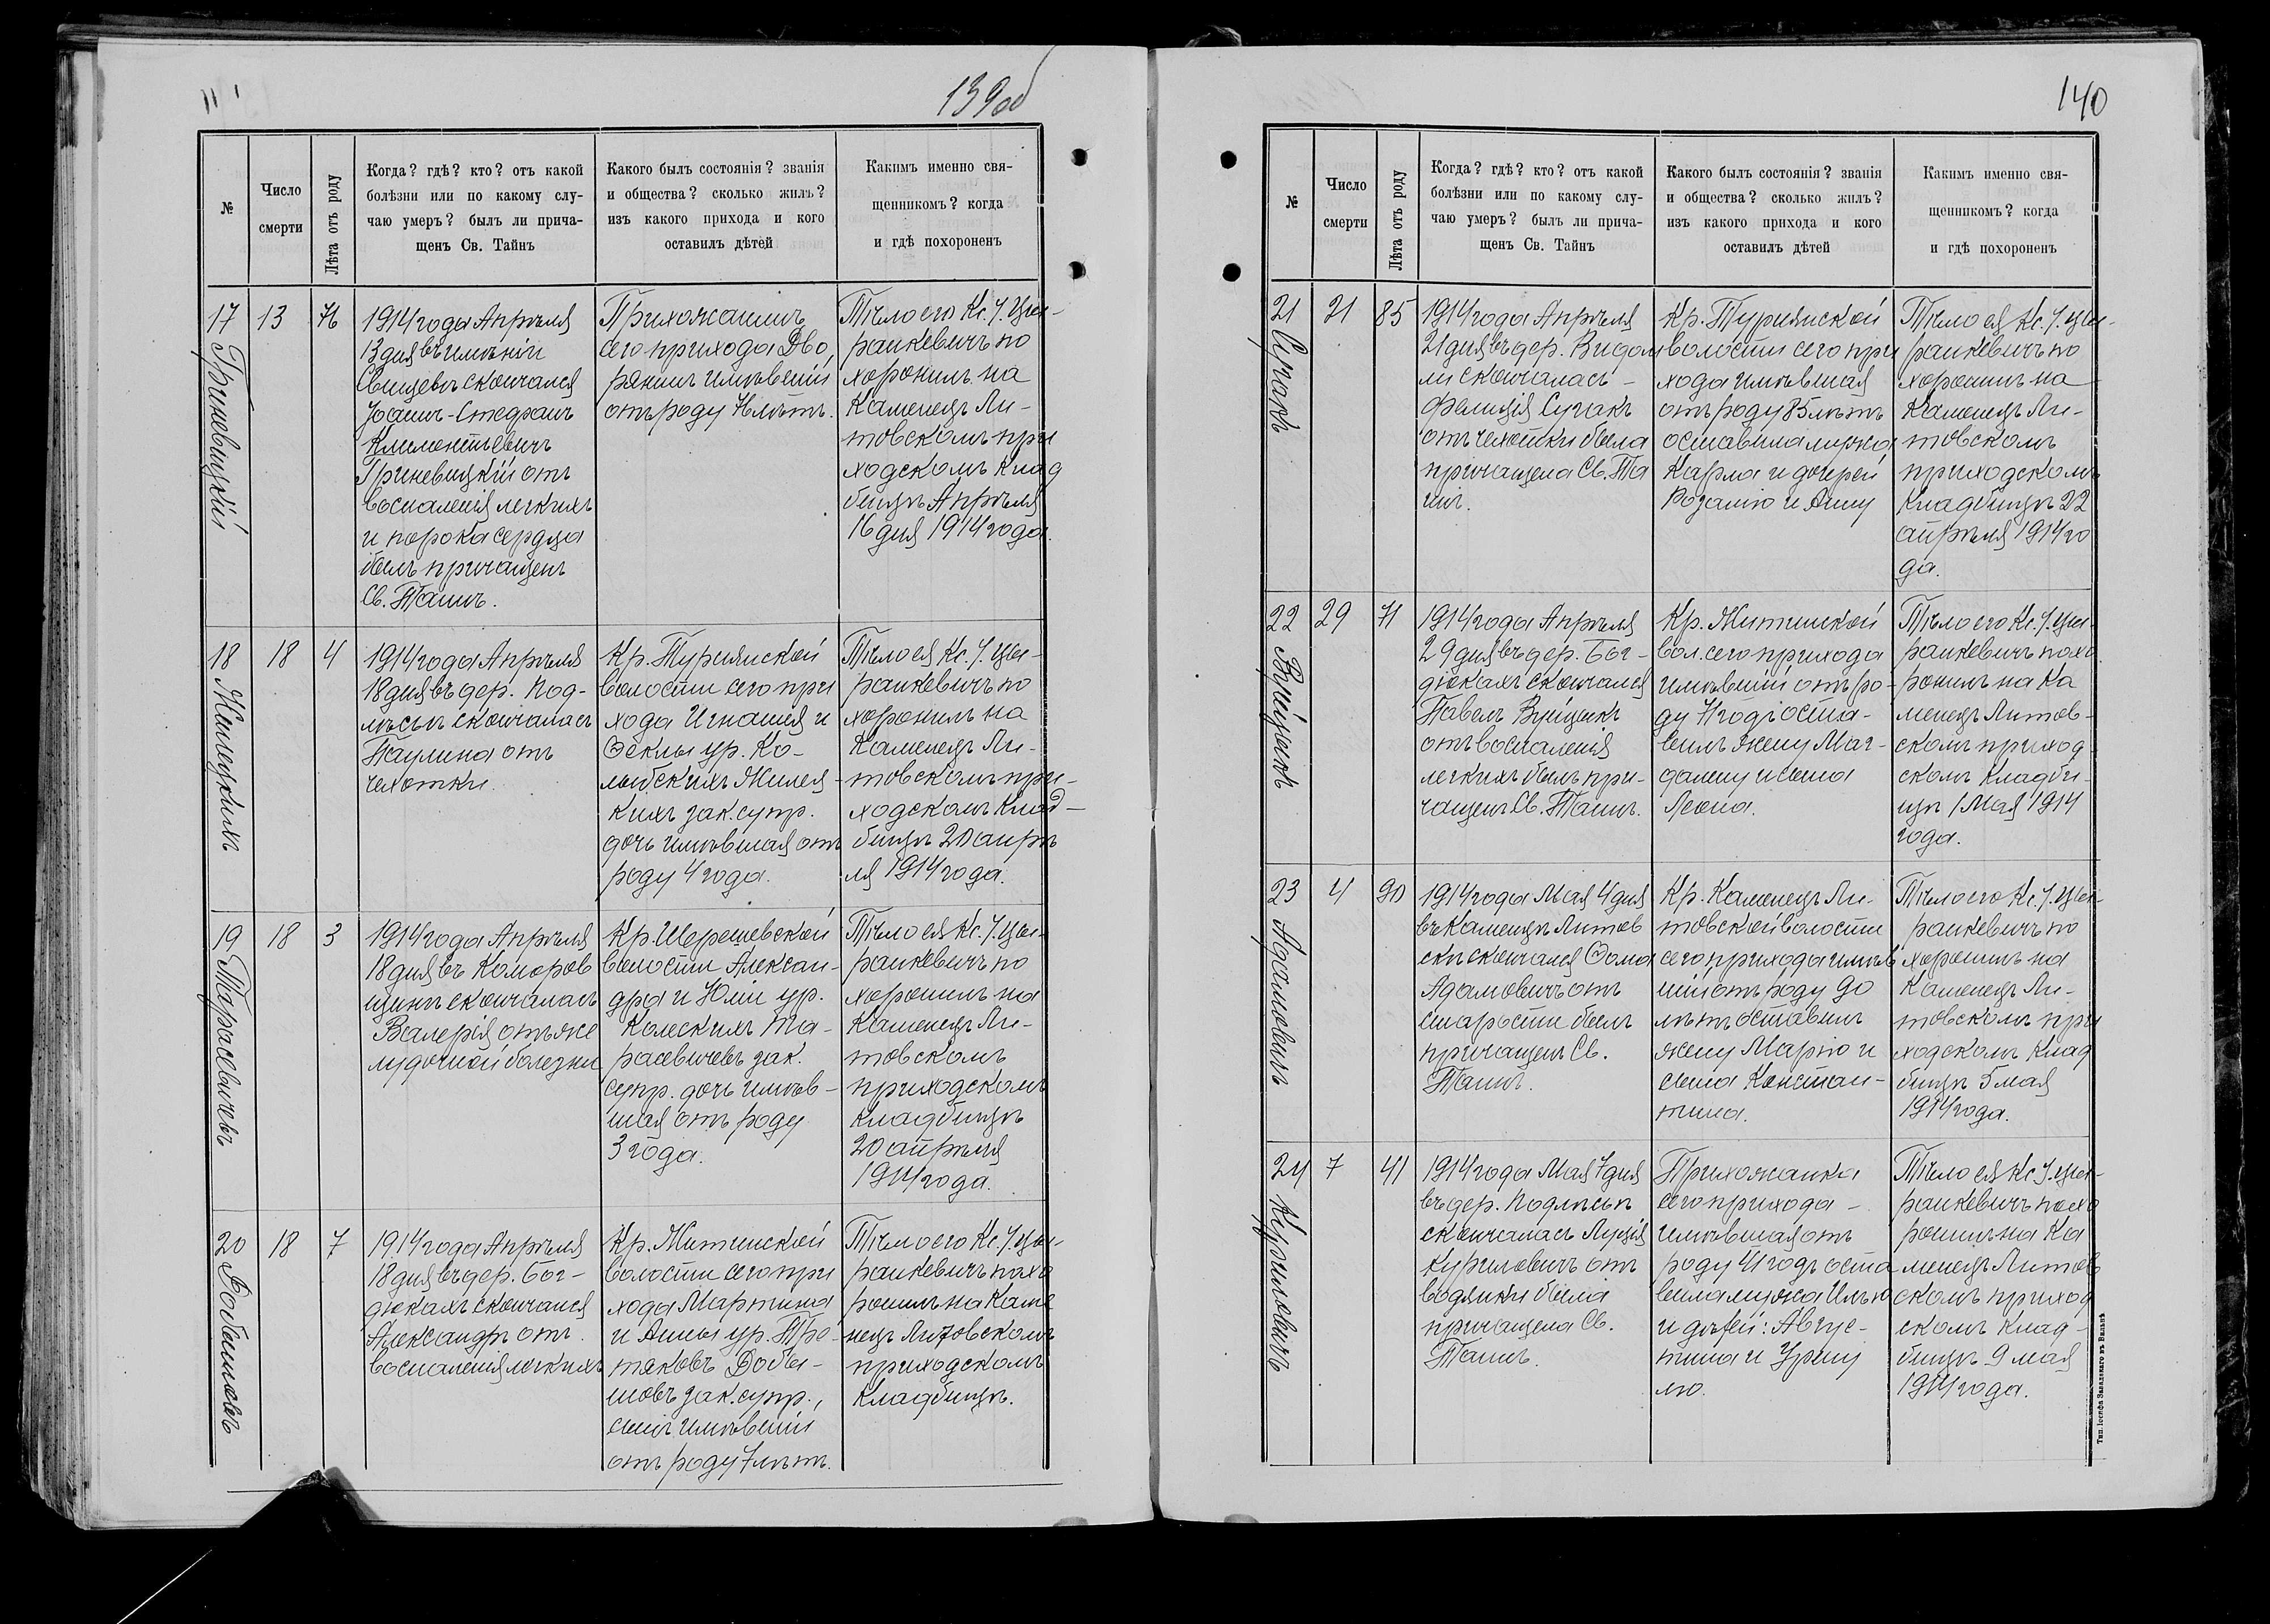 139об
№
Число
смерти
Лѣта отъ роду
Когда? гдѣ? кто? отъ какой
болѣзни или по какому слу-
чаю умеръ? былъ ли прича-
щенъ Св. Тайнъ
Какого былъ состоянія? званія
и общества? сколько жилъ?
изъ какого прихода и кого
оставилъ дѣтей
Какимъ именно свя-
щенникомъ? когда
и гдѣ похороненъ
17
Гриневицкій
13
71
1914 года Апрѣля
13 дня въ имѣніи
скончался
Іоаннъ-Стефанъ
Климентьевичъ
Гриневицкій отъ
воспаленія легкихъ
и порока сердца
былъ причащенъ
Св. Таинъ.
Прихожанинъ
сего прихода Дво,
рянинъ имѣвшій
отъ роду 71 лѣтъ.
Тѣло его Кс. У. Цы-
ранкевичъ по
хоронилъ на
Каменецъ Ли-
товскомъ при
ходскомъ клад
бищѣ Апрѣля
16 дня 1914 года.
18
Жилецкихъ
18
4
1914 года Апрѣля
18 дня въ дер. Под-
лѣсьѣ скончалась
Паулина отъ
чахотки.
Кр. Турнянской
волости сего при
хода Игнатія и
Ѳеклы ур. Ко-
лыбскихъ Жилец-
кихъ зак. супр.
дочь имѣвшая отъ
роду 4 года.
Тѣло ея Кс. У. Цы-
ранкевичъ по
хоронилъ на
Каменецъ Ли-
товскомъ при-
ходскомъ клад-
бищѣ 20 апрѣ
ля 1914 года.
19
Тарасевичевъ
18
3
1914 года Апрѣля
18 дня въ Комаров
щинѣ скончалась
Валерія отъ же
лудочной болезни
Кр. Шерешевской
волости Алексан-
дра и Юліи ур.
Колескихъ Та-
расевичевъ зак.
супр. дочь имѣв-
шая отъ роду
3 года.
Тѣло ея Кс. У. Цы-
ранкевичъ по
хоронилъ на
Каменецъ Ли-
товскомъ
приходскомъ
кладбищѣ
20 апрѣля
1914 года.
20
Добышовъ
18
7
1914 года Апрѣля
18 дня въ дер. Бог-
дюкахъ скончался
Александръ отъ
воспаленія легкихъ
Кр. Житинской
волости сего при
хода Мартина
и Анны ур. Тро-
тяковъ Добы-
шовъ зак. супр.,
сынъ имѣвшій
отъ роду 7 лѣтъ.
Тѣло его Кс. У. Цы-
ранкевичъ похо
ронилъ на Каме
нецъ Литовскомъ
приходскомъ
кладбищѣ.
140
№
Число
смерти
Лѣта отъ роду
Когда? гдѣ? кто? отъ какой
болѣзни или по какому слу-
чаю умеръ? былъ ли прича-
щенъ Св. Тайнъ
Какого былъ состоянія? званія
и общества? сколько жилъ?
изъ какого прихода и кого
оставилъ дѣтей
Какимъ именно свя-
щенникомъ? когда
и гдѣ похороненъ
21
Сучакъ
21
85
1914 года Апрѣля
21 дня въ дер. Видом
лѣ скончалась -
Фелиція Сучакъ
отъ чахотки была
причащена Св. Та
инъ.
Кр. Турнянской
волости сего при
хода имѣвшая
отъ роду 85 лѣтъ
оставила мужа
Карла и дочерей
Розалію и Анну
Тѣло ея Кс. У. Цы-
ранкевичъ по
хоронилъ на
Каменецъ Ли-
товскомъ
приходскомъ
кладбищѣ 22
апрѣля 1914 го
да.
22
Вуйцикъ
29
71
1914 года Апрѣля
29 дня въ дер. Бог-
дюкахъ скончался
Павелъ Вуйцикъ
отъ воспаленія
легкихъ былъ при-
чащенъ Св. Таинъ.
Кр. Житинской
вол. сего прихода
имѣвшій отъ ро-
ду 71 годъ оста-
вилъ жену Маг-
далину и сына
Леона.
Тѣло его Кс. У. Цы-
ранкевичъ похо
ронилъ на Ка
менецъ Литов-
скомъ приход-
скомъ кладби-
щѣ 1 Мая 1914
года.
23
Адамовичъ
4
90
1914 года Мая 4 дня
въ Каменцѣ Литов
скѣ скончался Ѳома
Адамовичъ отъ
старости былъ
причащенъ Св.
Таинъ.
Кр. Каменецъ Ли-
товской волости
сего прихода имѣв
шій отъ роду 90
лѣтъ оставилъ
жену Марію и
сына Констан-
тина.
Тѣло его Кс. У. Цы-
ранкевичъ по
хоронилъ на
Каменецъ Ли-
товскомъ при
ходскомъ клад
бищѣ 5 мая
1914 года.
24
Куриловичъ
7
41
1914 года Мая 7 дня
въ дер. Подлѣсьѣ
скончалась Луція
Куриловичъ отъ
водянки была
причащена Св.
Таинъ.
Прихожанка
сего прихода -
имѣвшая отъ
роду 41 годъ оста
вила мужа Илью
и дѣтей: Авгус-
тина и Урсу
лю.
Тѣло ея Кс. У. Цы-
ранкевичъ похо
ронилъ на Ка
менецъ Литов
скомъ приход
скомъ клад-
бищѣ 9 мая
1914 года.
Тип. Іосифа Завадзкаго въ Вильнѣ